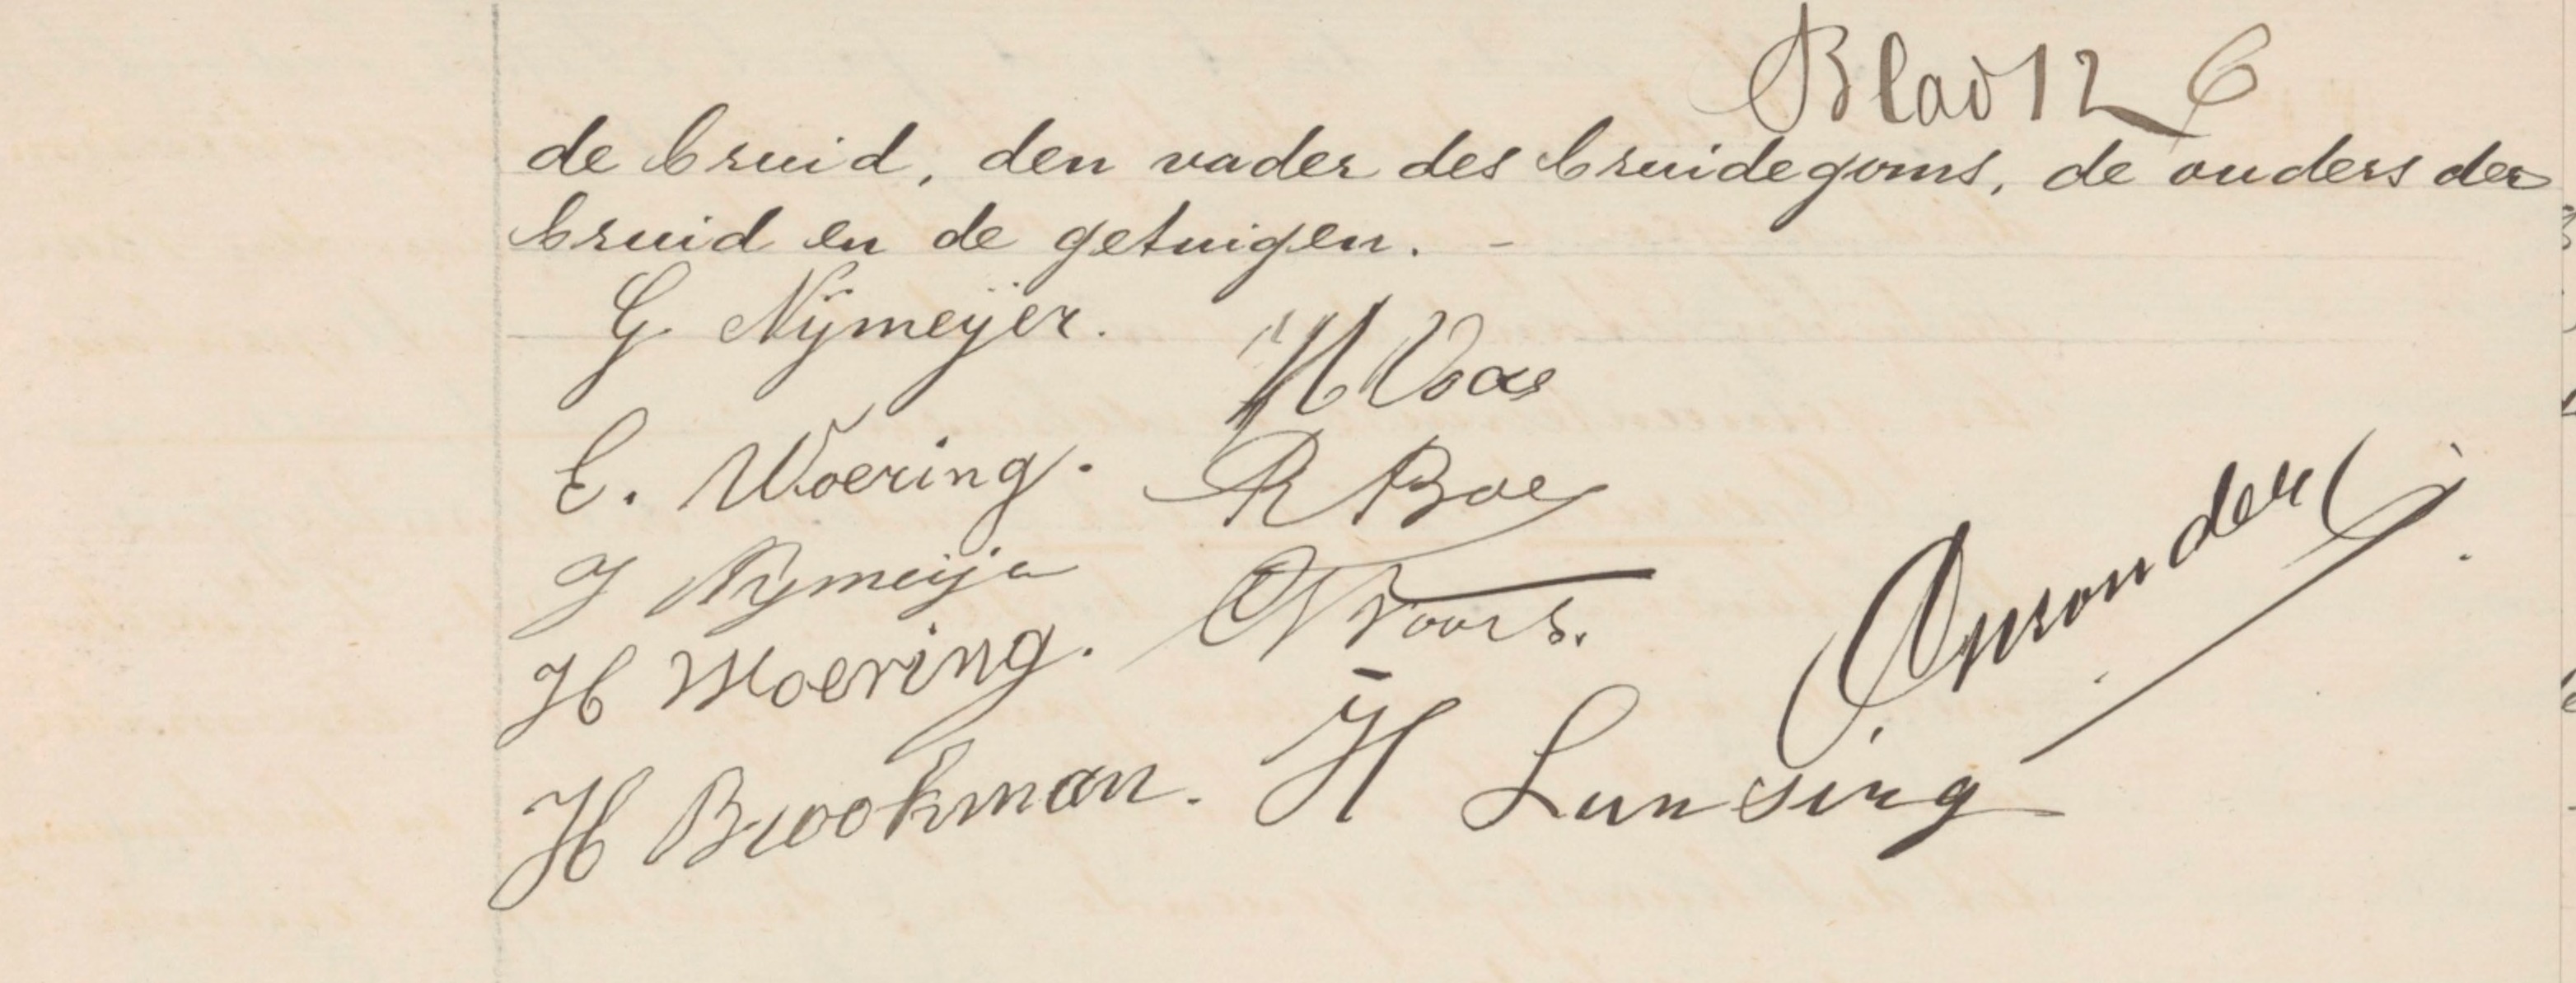 Blad 12
de bruid, den vader des bruidegoms, de ouders der
bruid en de getuigen. -
G Nijmeijer.
H Vos
E. Woering.
R Bos
J Nijmeijer
H Woering.
H Brookman.
H Lunsing